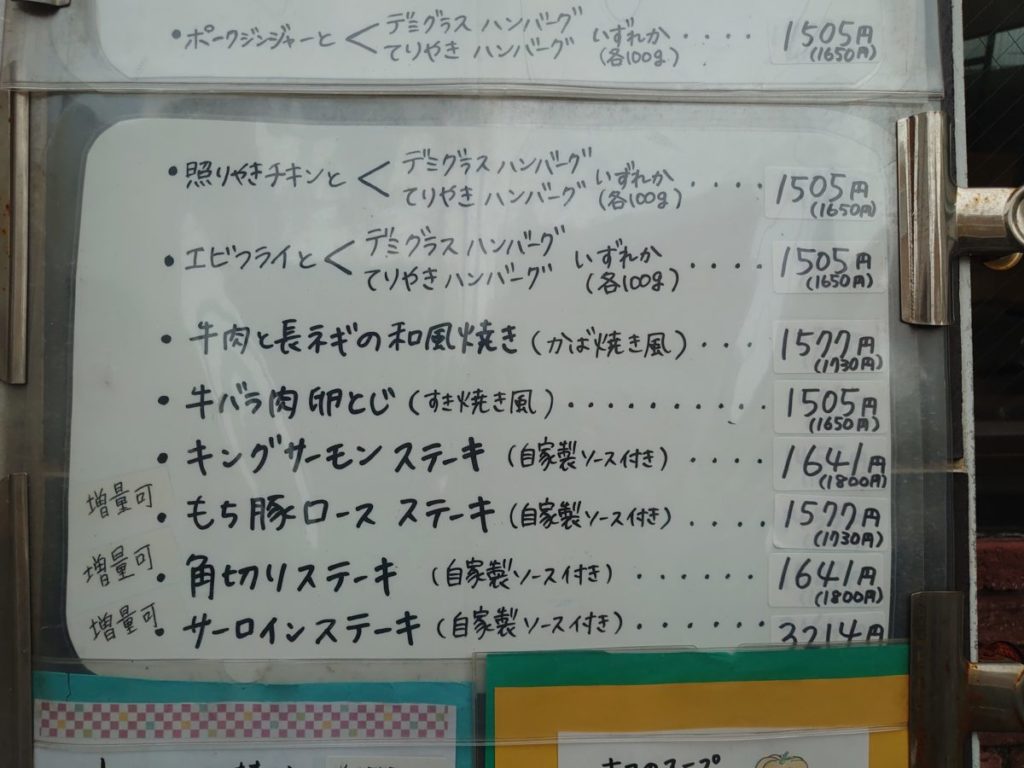 ・ポークジンジャーと < デミグラス ハンバーグ いずれか ‥‥ 1505円
てりやき ハンバーグ (各100g) (1650円)
・照りやきチキンと < デミグラス ハンバーグ いずれか ‥‥ 1505円
てりやき ハンバーグ (各100g) (1650円)
・エビフライと < デミグラス ハンバーグ いずれか ‥‥ 1505円
てりやきハンバーグ (各100g) (1650円)
・牛肉と長ネギの和風焼き (かば焼き風) ‥‥ 1577円
(1730円)
・牛バラ肉 卵とじ (すき焼き風) ‥‥‥‥‥ 1505円
(1650円)
・キングサーモン ステーキ (自家製ソース付き) ‥‥ 1641円
(1800円)
増量可 ・もち豚ロース ステーキ (自家製ソース付き) ‥‥ 1577円
(1730円)
増量可 ・角切りステーキ (自家製ソース付き) ‥‥‥ 1641円
(1800円)
増量可 ・サーロインステーキ (自家製ソース付き) ‥‥‥ 3214円